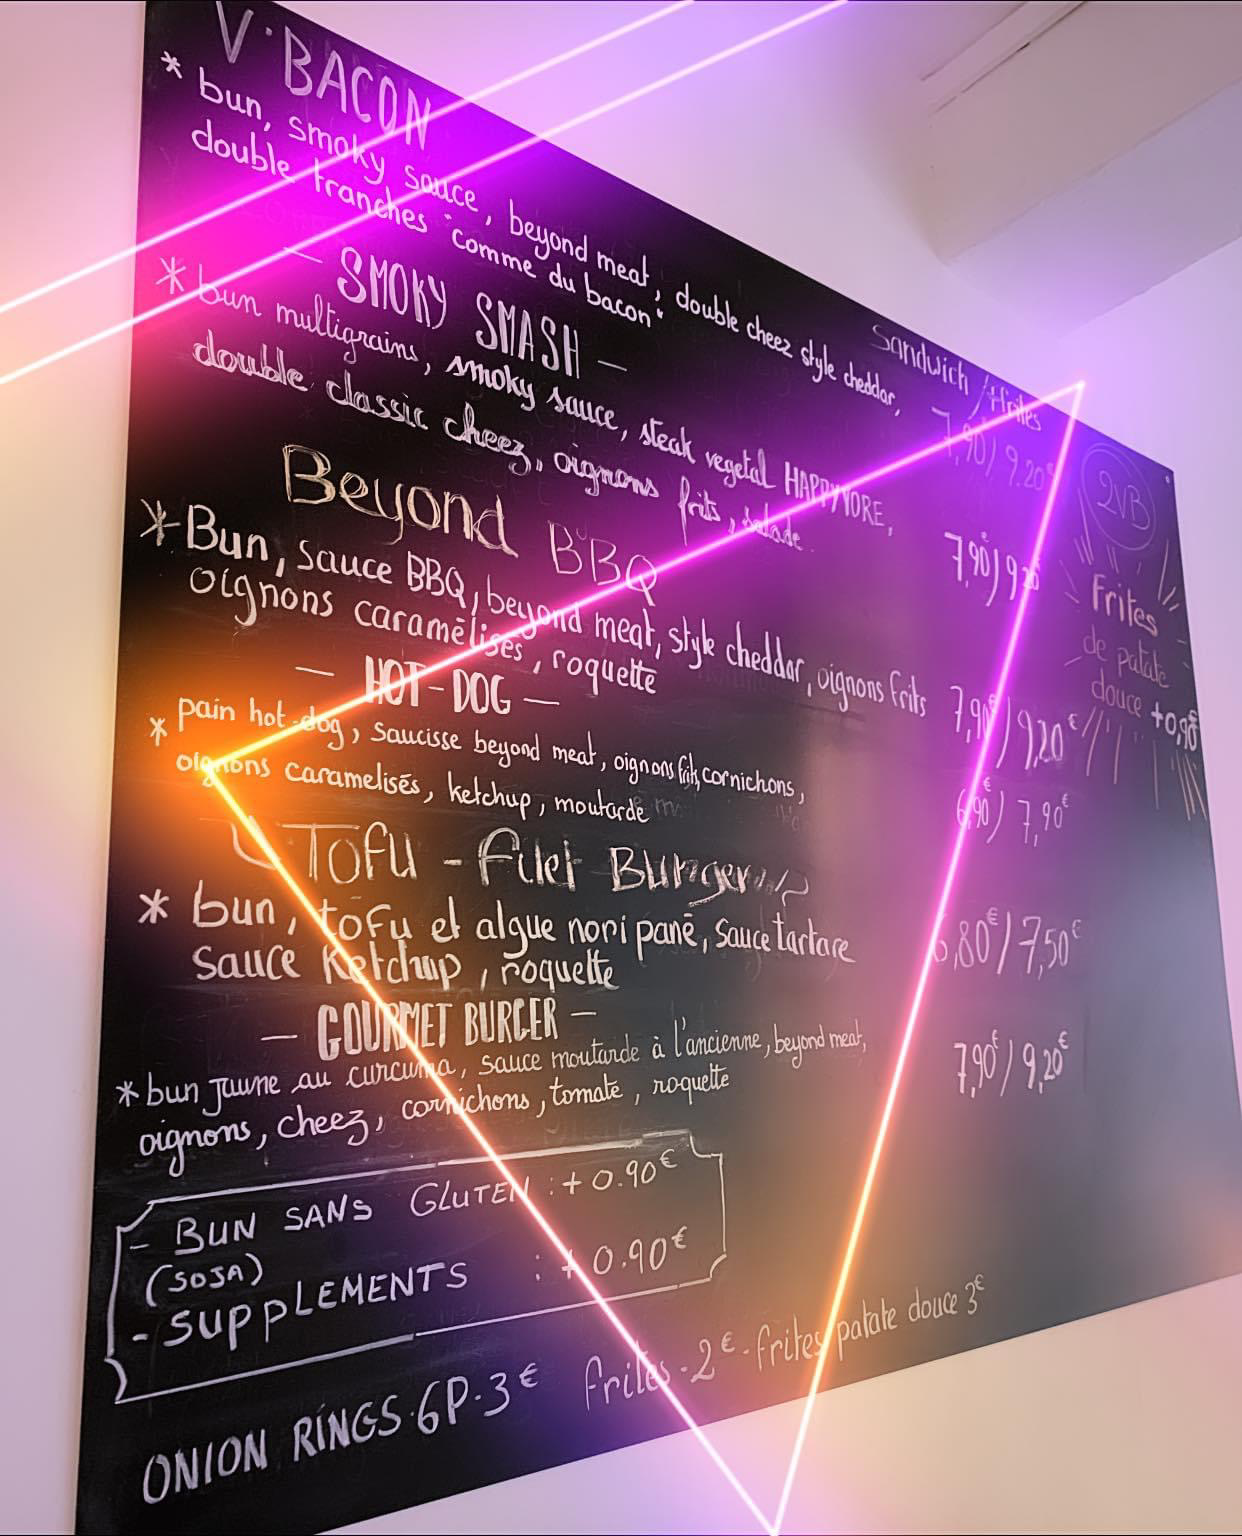 V·BACON
* bun, smoky sauce, beyond meat, double cheez style cheddar,
double tranches "comme du bacon"
Sandwich / +frites
7,90 / 9.20€
— SMOKY SMASH —
* bun multigrains, smoky sauce, steak vegetal HAPPYVORE,
double classic cheez, oignons frits, salade.
7,90€ / 9,20
Beyond BBQ
* Bun, sauce BBQ, beyond meat, style cheddar, oignons frits
oignons caramélisés, roquette
7,90€ / 9,20€
— HOT-DOG —
* pain hot-dog, saucisse beyond meat, oignons frits, cornichons,
oignons caramelisés, ketchup, moutarde
6,90€ / 7,90€
Tofu - Filet Burger
* bun, tofu et algue nori pané, sauce tartare
sauce Ketchup, roquette
6,80€ / 7,50€
— GOURMET BURGER —
* bun jaune au curcuma, sauce moutarde à l'ancienne, beyond meat,
oignons, cheez, cornichons, tomate, roquette
7,90€ / 9,20€
2VB
Frites
de patate
douce +0,90€
- BUN SANS GLUTEN : + 0.90€
(SOJA)
- SUPPLEMENTS : + 0.90€
ONION RINGS·6P·3€ frites·2€·frites patate douce 3€